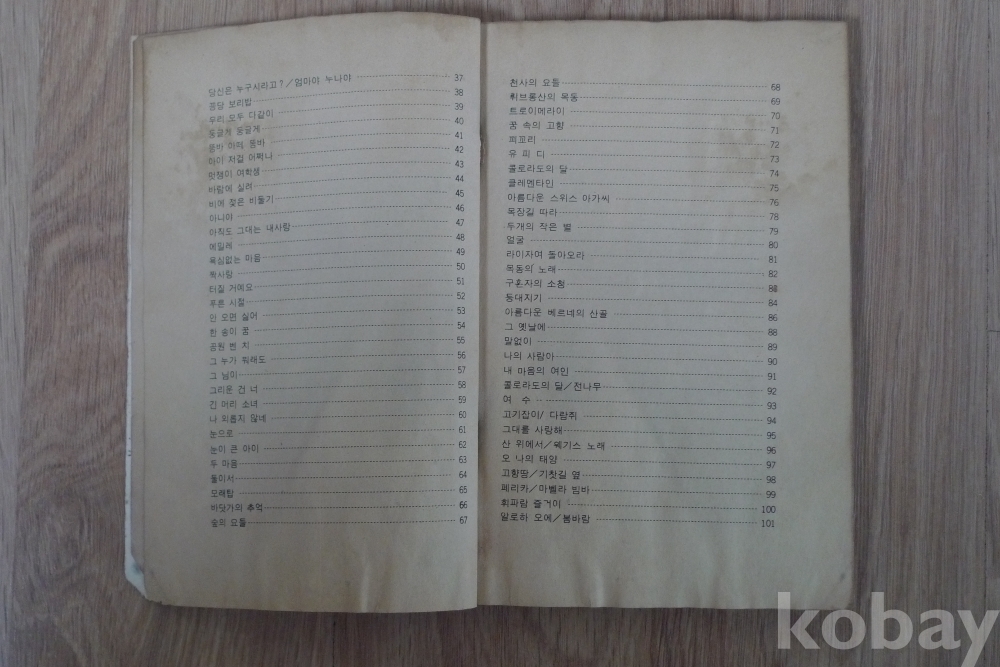 당신은 누구시라고?/엄마야 누나야 37
꽁당 보리밥 38
우리 모두 다같이 39
둥글게 둥글게 40
통바 아께 통바 41
아이 저걸 어쩌나 42
멋쟁이 여학생 43
바람에 실려 44
비에 젖은 비둘기 45
아나야 46
아직도 그대는 내사랑 47
에밀레 48
욕심없는 마음 49
짝사랑 50
터질 거예요 51
푸른 시절 52
인 오면 싫어 53
한 송이 꿈 54
공원 벤 치 55
그 누가 뭐래도 56
그 님이 57
그리운 건 너 58
긴 머리 소녀 59
나 외롭지 않네 60
눈으로 61
눈이 큰 아이 62
두 마음 63
둘이서 64
모래탑 65
바닷가의 추억 66
숲의 요들 67
천사의 요들 68
휘브롱산의 목동 69
트로이메라이 70
꿈 속의 고향 71
꾀꼬리 72
유 피 디 73
콜로라도의 달 74
클레멘타인 75
아름다운 스위스 아가씨 76
목장길 따라 78
두개의 작은 별 79
얼굴 80
라이자여 돌아오라 81
목동의 노래 82
구혼자의 소청 83
등대지기 84
아름다운 베르네의 산골 86
그 옛날에 88
말없이 89
나의 사람아 90
내 마음의 여인 91
콜로라도의 달/전나무 92
여 수 93
고기잡이/ 다람쥐 94
그대를 사랑해 95
산 위에서/웩기스 노래 96
오 나의 태양 97
고향땅/기찻길 옆 98
페리카/마벨라 빔바 99
휘파람 즐거이 100
알로하 오에/봄바람 101
kobay